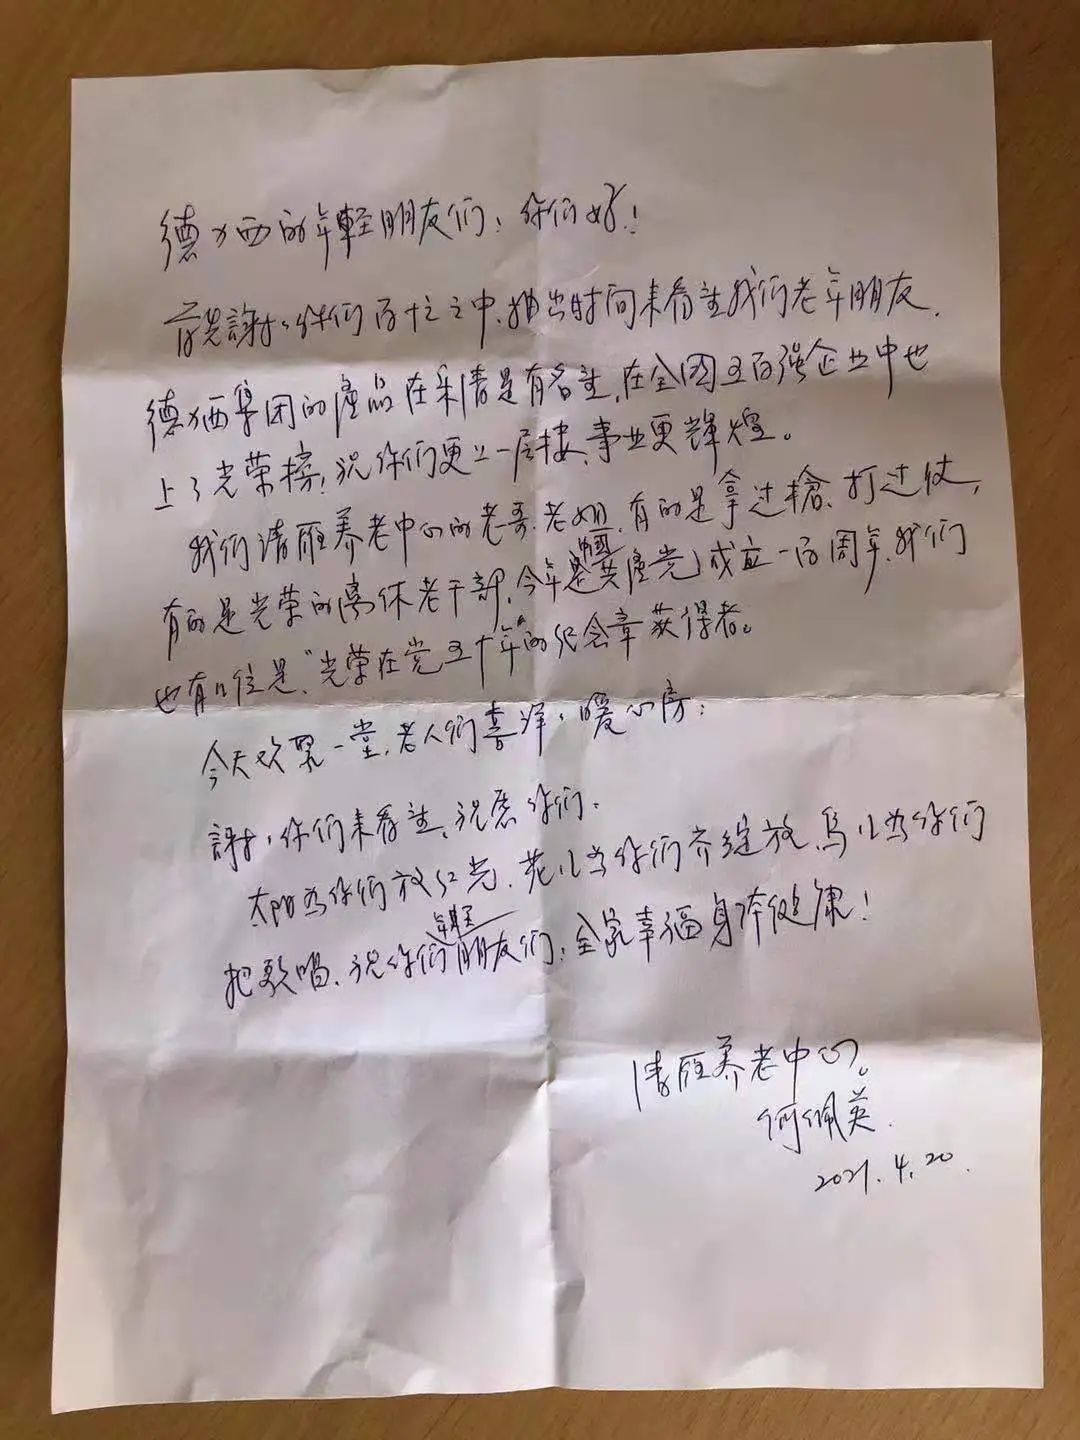 德力西的年輕朋友们：你们好！
首先謝谢你们百忙之中，抽出时间来看望我们老年朋友．
德力西集团的產品在乐清是有名望，在全国五百强企业中也
上了光荣榜！祝你们更上一层楼，事业更辉煌。
我们清雁养老中心的老哥．老姐．有的是拿过槍．打过仗，
有的是光荣的离休老干部，今年是中國共產党成立一百周年．我们
也有几位是“光荣在党五十年”的纪念章获得者。
今天欢聚一堂，老人们喜洋々 暖心房；
謝々你们来看望，祝愿你们．
太阳为你们放红光．花儿为你们齐绽放．鸟儿为你们
把歌唱．祝你们年輕朋友们：全家幸福身体健康！
清雁养老中心。
何佩英．
2021.4.20.